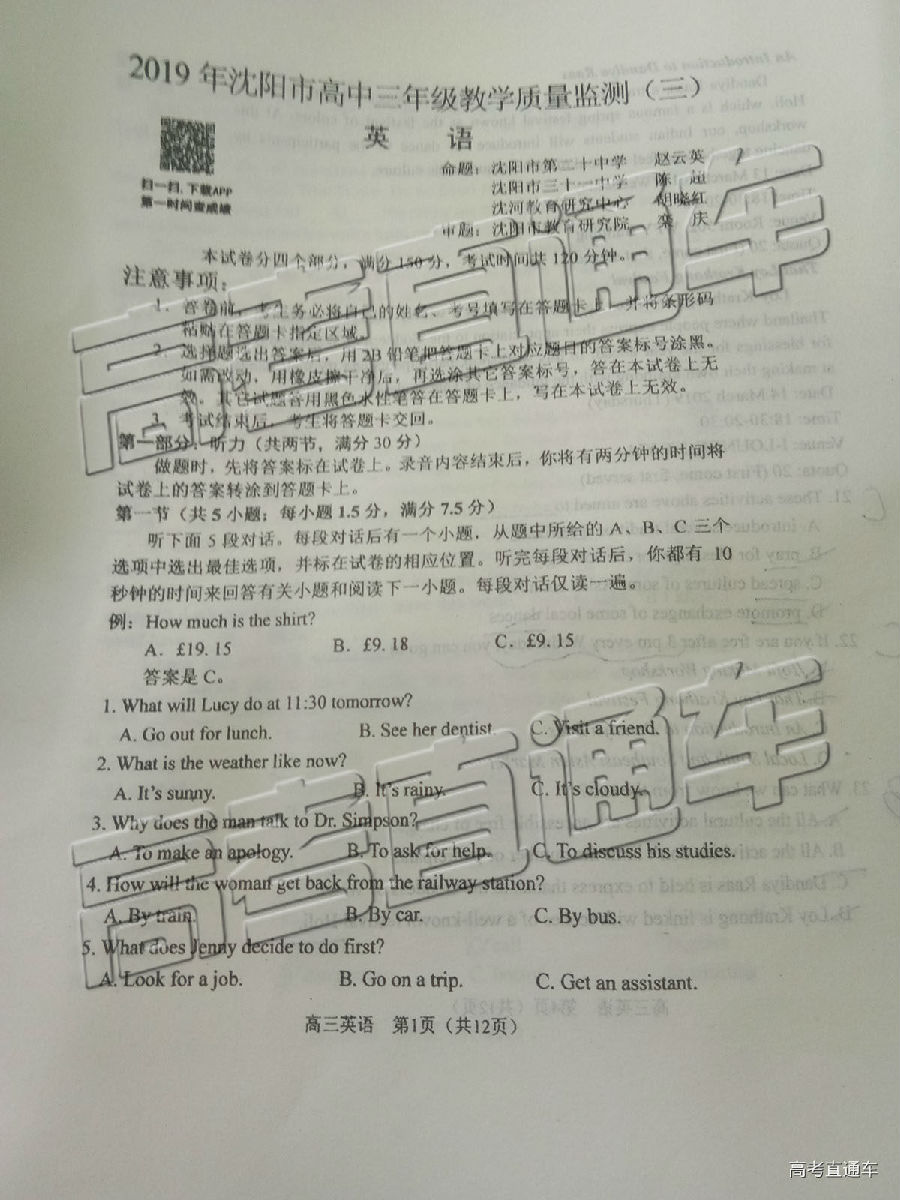 2019年沈阳市高中三年级教学质量监测（三）
英 语
扫一扫，下载APP
第一时间查成绩
命题：沈阳市第二十中学 赵云英
沈阳市三十一中学 陈 超
沈河教育研究中心 胡晓红
审题：沈阳市教育研究院 栾 庆
本试卷分四个部分，满分150分，考试时间共120分钟。
注意事项：
1．答卷前，考生务必将自己的姓名、考号填写在答题卡上，并将条形码
粘贴在答题卡指定区域。
2．选择题选出答案后，用2B铅笔把答题卡上对应题目的答案标号涂黑。
如需改动，用橡皮擦干净后，再选涂其它答案标号，答在本试卷上无
效。其它试题答用黑色水性笔答在答题卡上，写在本试卷上无效。
3．考试结束后，考生将答题卡交回。
第一部分：听力（共两节，满分30分）
做题时，先将答案标在试卷上。录音内容结束后，你将有两分钟的时间将
试卷上的答案转涂到答题卡上。
第一节（共5小题；每小题1.5分，满分7.5分）
听下面5段对话。每段对话后有一个小题，从题中所给的A、B、C三个
选项中选出最佳选项，并标在试卷的相应位置。听完每段对话后，你都有10
秒钟的时间来回答有关小题和阅读下一小题。每段对话仅读一遍。
例：How much is the shirt?
A．£19.15 B．£9.18 C．£9.15
答案是C。
1. What will Lucy do at 11:30 tomorrow?
A. Go out for lunch. B. See her dentist. C. Visit a friend.
2. What is the weather like now?
A. It's sunny. B. It's rainy. C. It's cloudy.
3. Why does the man talk to Dr. Simpson?
A. To make an apology. B. To ask for help. C. To discuss his studies.
4. How will the woman get back from the railway station?
A. By train. B. By car. C. By bus.
5. What does Jenny decide to do first?
A. Look for a job. B. Go on a trip. C. Get an assistant.
高三英语 第1页（共12页）
高考直通车
高考直通车
高考直通车